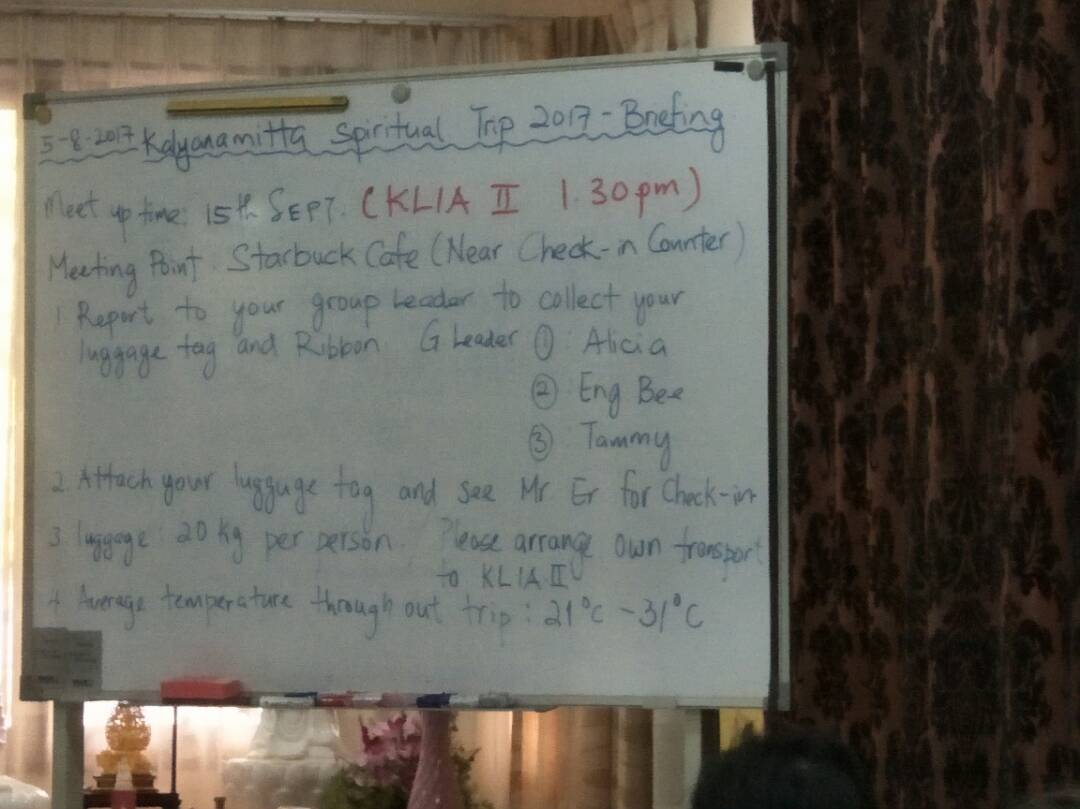 5-8-2017 Kalyanamitta Spiritual Trip 2017 - Briefing
Meet up time: 15th SEPT. (KLIA II 1.30pm)
Meeting Point. Starbuck Cafe (Near Check-in Counter)
1 Report to your group Leader to collect your
luggage tag and Ribbon G Leader ① : Alicia
② : Eng Bee
③ : Tammy
2. Attach your lugguge tag and see Mr Er for Check-in
3. luggage : 20 kg per person. Please arrange own transport
to KLIA II
4 Average temperature through out trip : 21°c - 31°C